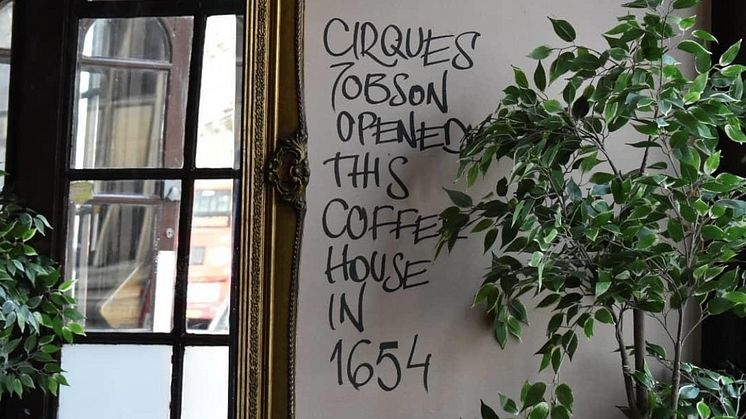 CIRQUES
JOBSON
OPENED
THIS
COFFEE
HOUSE
IN
1654